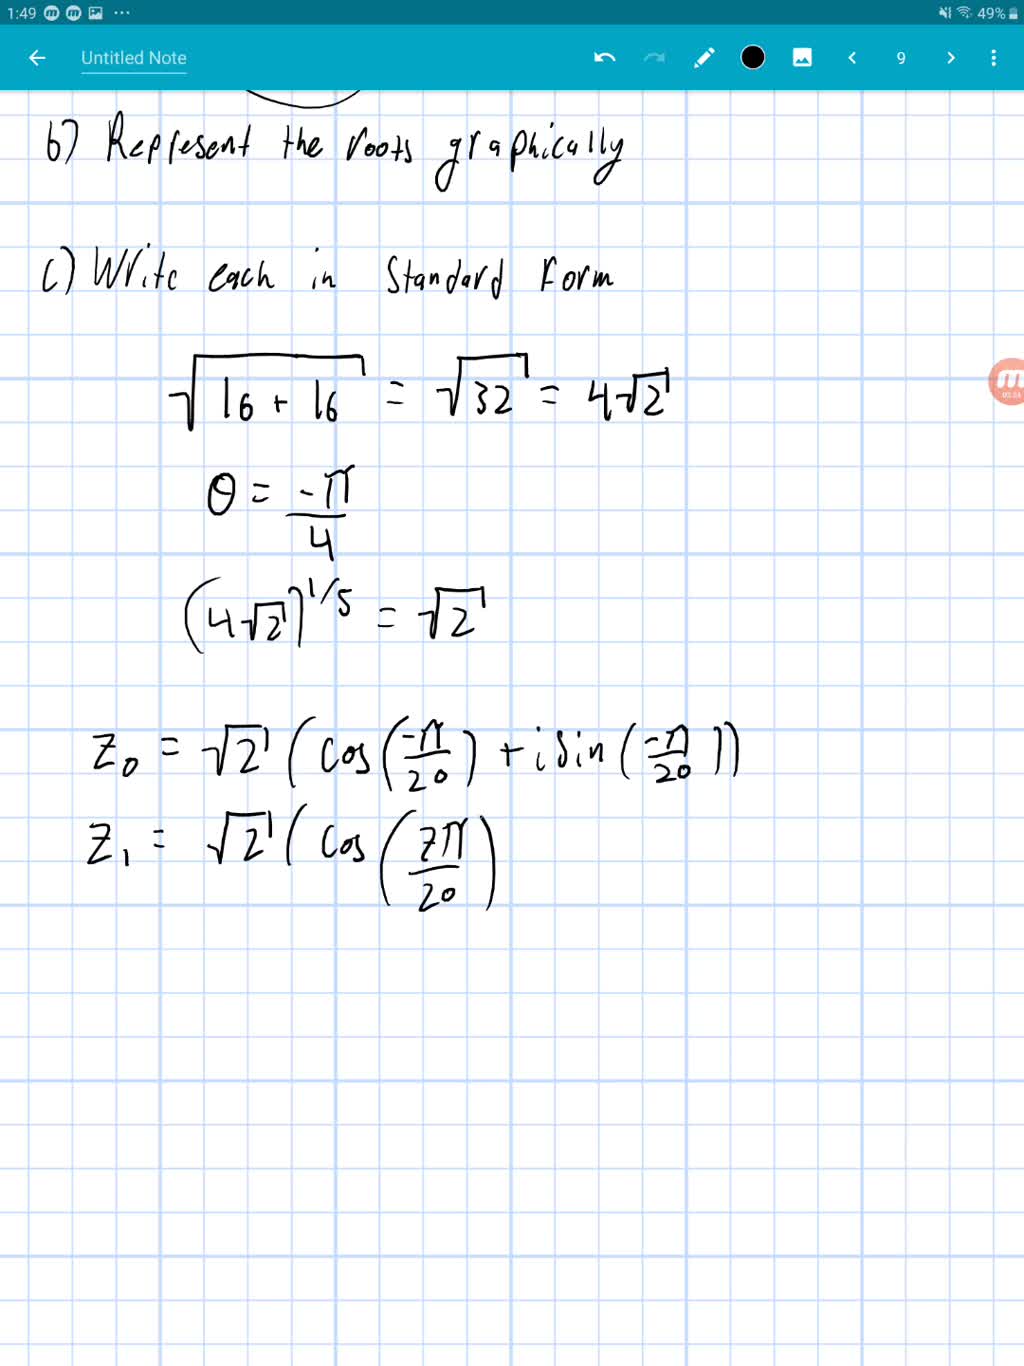 1:49 49%
Untitled Note 9
b) Represent the roots graphically
c) Write each in Standard Form
√(16 + 16) = √32 = 4√2
θ = -π/4
(4√2)^1/5 = √2
z₀ = √2 (cos(-π/20) + i sin(-π/20))
z₁ = √2 (cos(7π/20)